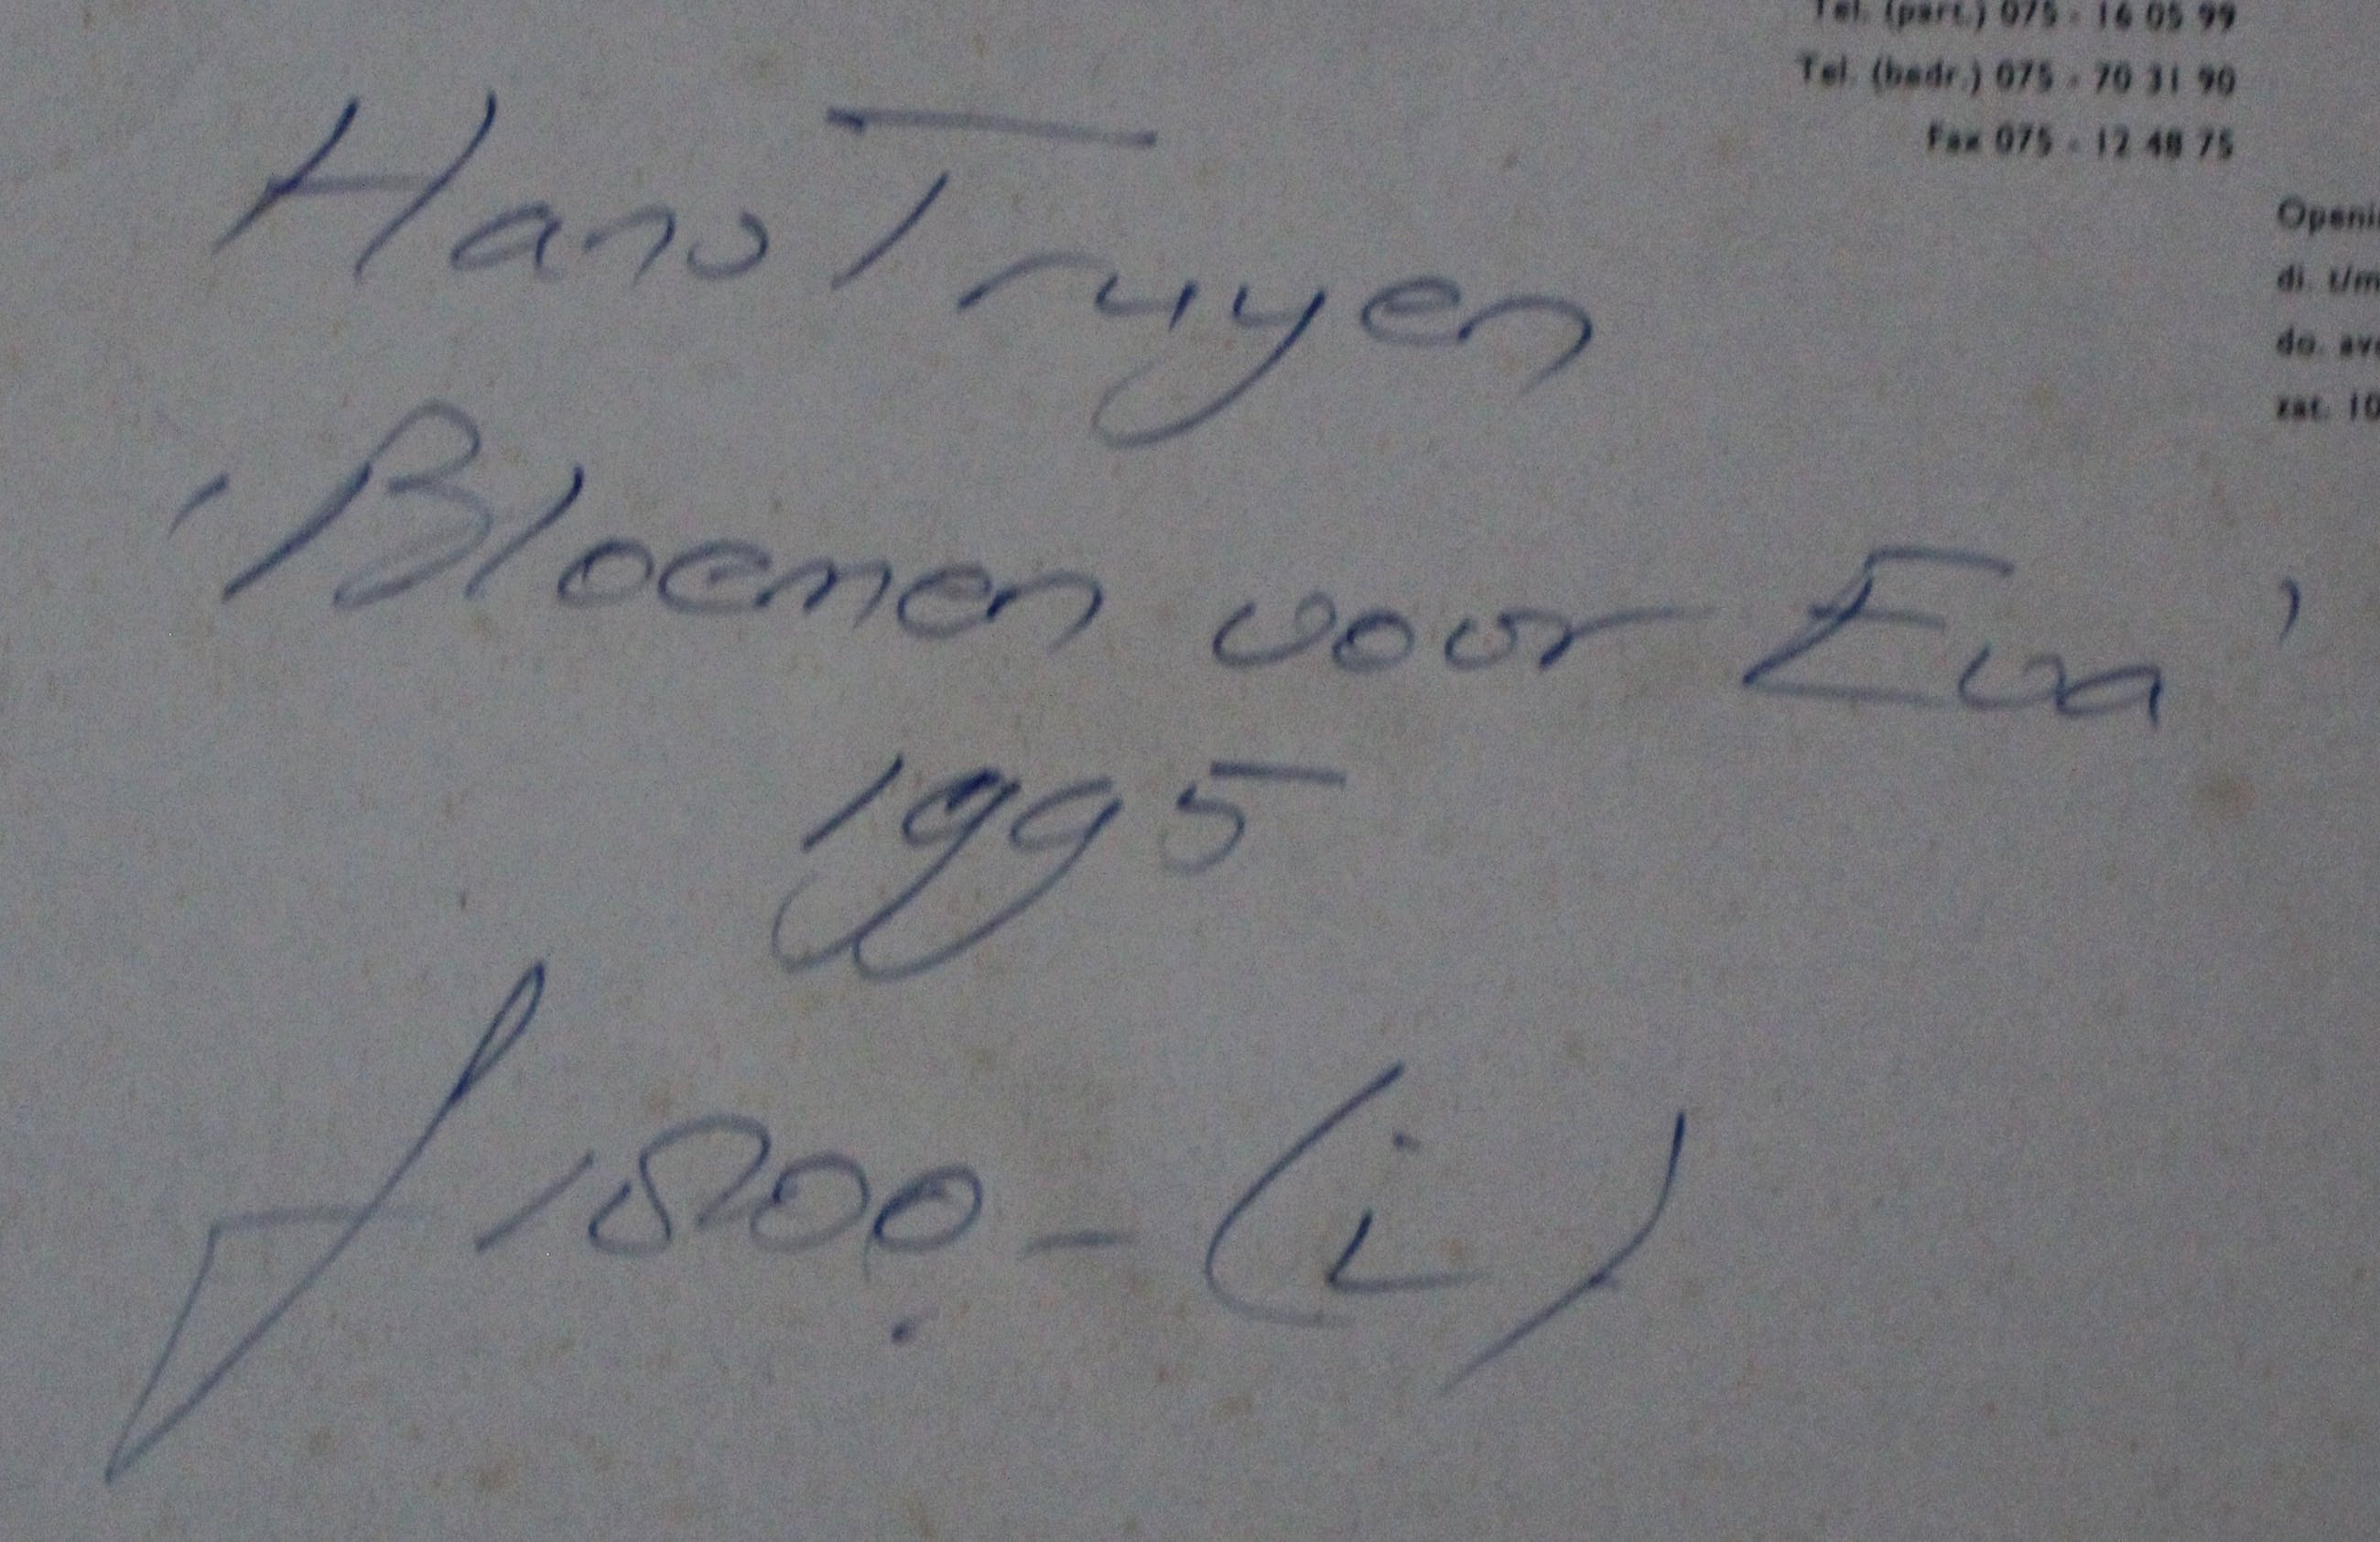 Tel. (part.) 075 - 16 05 99
Tel. (bedr.) 075 - 70 31 90
Fax 075 - 12 48 75
Openi
di. t/m
do. av
zat. 10
Hans Truyen
'Bloemen voor Eva'
1995
ƒ 1800 - (i)